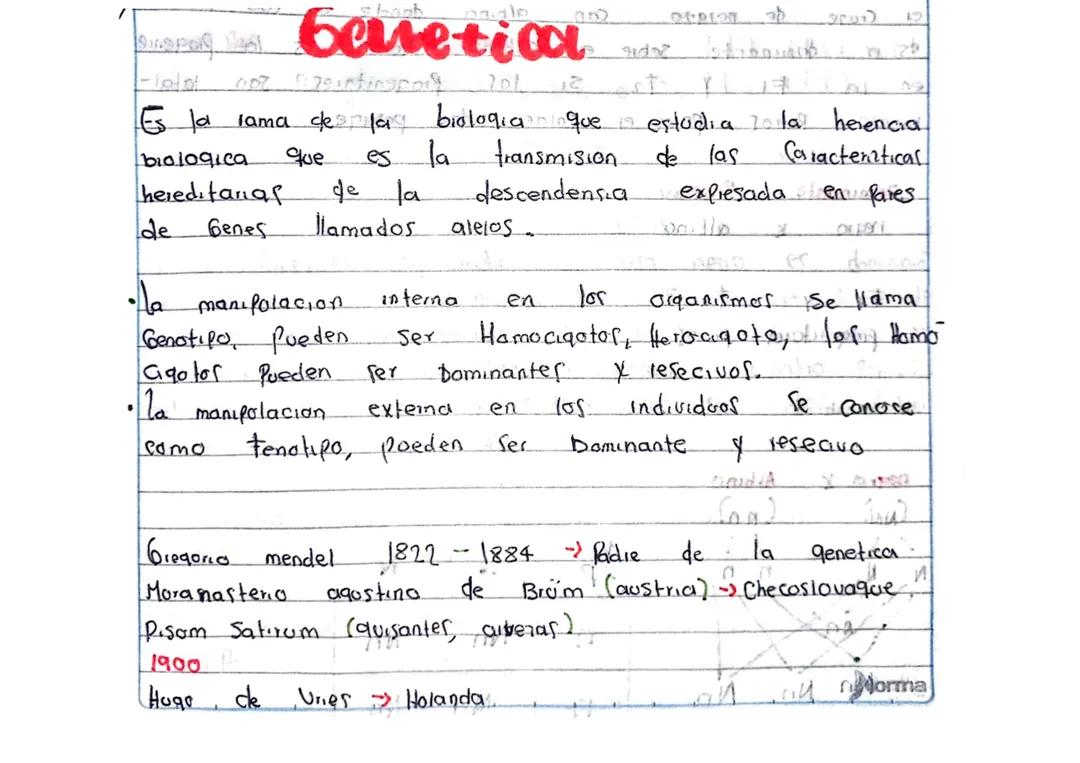 Genetica
Es la rama de la biologia que estudia la herencia
biologica que es la transmision de las Caracterizticas
hereditarias de la descendensia expresada en Pares
de Genes llamados alelos.
• La manipolacion interna en los organismos se llama
Genotipo, Pueden ser Hamocigotos, Herocigoto, los Homo
Cigotos Pueden ser Dominantes y resecivos.
• La manipolacion externa en los individuos se conose
como fenotipo, pueden ser Dominante y resecivo
Gregorio mendel 1822 - 1884 → Padre de la genetica
Moranasterio agostino de Brüm (austria) → Checoslovaque
Pisom Satirum (guisantes, arberas)
1900
Hugo de Vries → Holanda
Norma